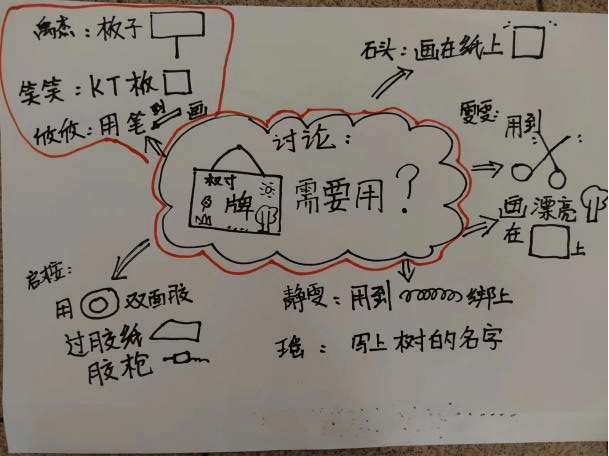 禹杰：板子
笑笑：KT板
攸攸：用笔到画
石头：画在纸上
雯雯：用到
画漂亮
在上
讨论：
树牌
需要用？
用双面胶
过胶纸
胶枪
静雯：用到绑上
瑶：写上树的名字